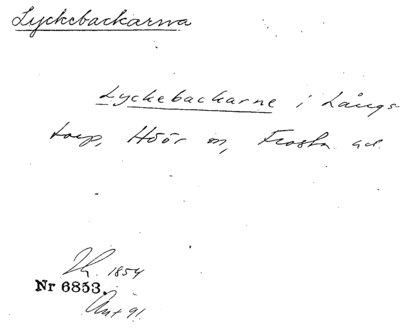 Lyckebackarna
Lyckebackarne i Långs-
torp, Höör sn, Frosta hd.
1854
Nr 6853.
Ant 91.